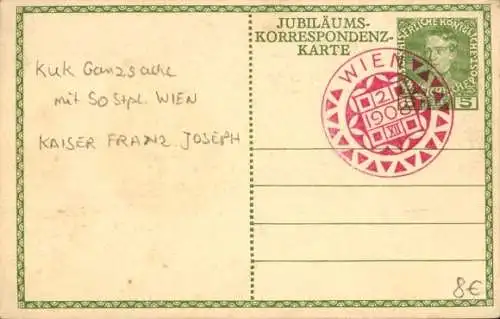 JUBILÄUMS-
KORRESPONDENZ-
KARTE
KUK Ganzsache
mit SOStpl. WIEN
KAISER FRANZ JOSEPH
WIEN
2.
1908
XII
5
8€